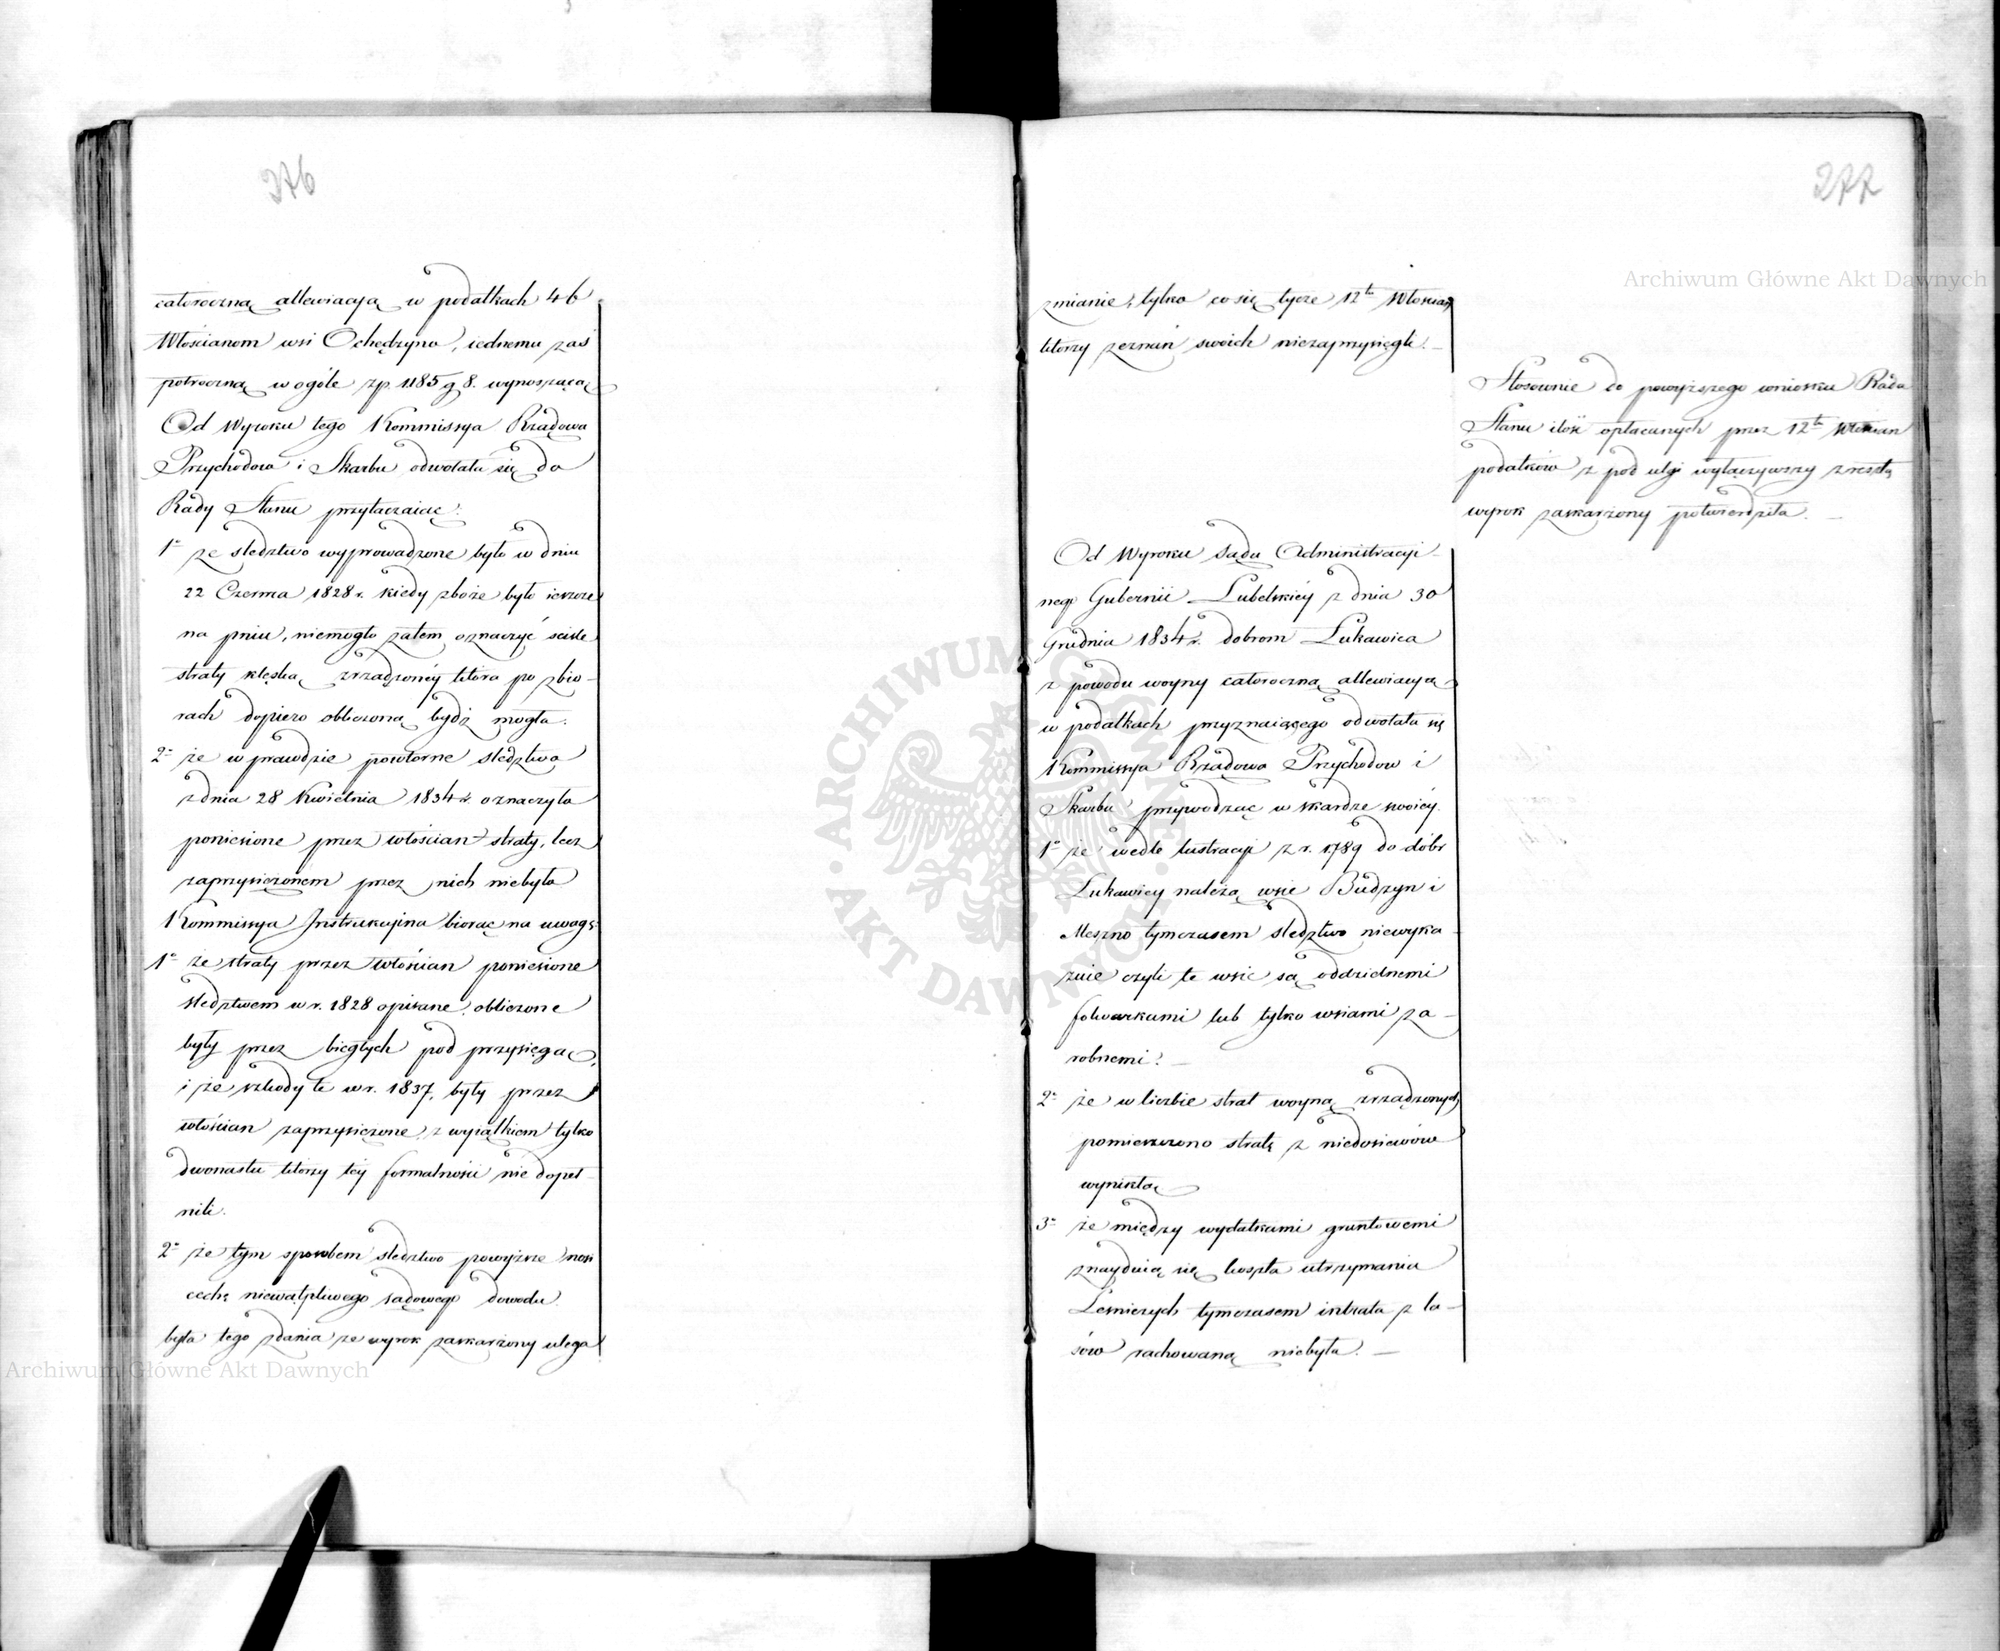 276
całoroczną allewiacyą w podatkach 46
Włościanom wsi Ochędzyna, iednemu zaś
półroczną w ogóle zp. 1185 g 8. wynoszącą
Od Wyroku tego Kommissya Rządowa
Przychodow i Skarbu odwołała się do
Rady Stanu przytaczaiąc:
1º że sledztwo wyprowadzone było w dniu
22 Czerwca 1828 r. kiedy zboże było ieszcze
na pniu, niemogło zatem oznaczyć sciśle
straty klęską zrządzonéy która po zbio-
rach dopiero obliczoną bydź mogła.
2º że wprawdzie powtorne sledztwo
z dnia 28 Kwietnia 1834 r. oznaczyło
poniesione przez włościan straty, lecz
zaprzysiężonem przez nich niebyło
Kommissya Instrukcyjna biorąc na uwagę:
1º że straty przez włościan poniesione
sledztwem w r. 1828 opisane, obliczone
były przez biegłych pod przysięgą,
i że szkody te w r. 1837, były przez
włościan zaprzysiężone, z wyiątkiem tylko
dwonastu którzy téy formalności nie dopeł-
nili.
2º że tym sposobem sledztwo powyższe nosi
cechę niewątpliwego sądowego dowodu.
była tego zdania że wyrok zaskarżony ulega
277
zmianie, tylko co się tycze 12tu Włoscian,
którzy zeznań swoich niezaprzysięgli. —
Stosownie do powyższego wniosku Rada
Stanu ilość opłacanych przez 12tu Włoscian
podatków z pod ulgi wyłączywszy zresztą
wyrok zaskarżony potwierdziła. —
Od Wyroku Sądu Administracyi-
nego Gubernii Lubelskiéy z dnia 30
Grudnia 1834 r. dobrom Łukawica
z powodu woyny całoroczną allewiacyą
w podatkach przyznaiącego odwołała się
Kommissya Rządowa Przychodow i
Skarbu przywodząc w skardze swoiéy.
1º że wedle lustracyi z r. 1789 do dóbr
Łukawicy należą wsie Budzyn i
Meszno tymczasem sledztwo niewyka-
zuie czyli te wsie są oddzielnemi
folwarkami lub tylko wsiami za-
robnemi? —
2º że w liczbie strat woyną zrządzonych
pomieszczono stratę z niedosiewów
wynikłą
3º że między wydatkami gruntowemi
znayduią się koszta utrzymania
Leśniczych tymczasem intrata z la-
sów rachowaną niebyła. —
Archiwum Główne Akt Dawnych
Archiwum Główne Akt Dawnych
ARCHIWUM GŁÓWNE · AKT DAWNYCH ·